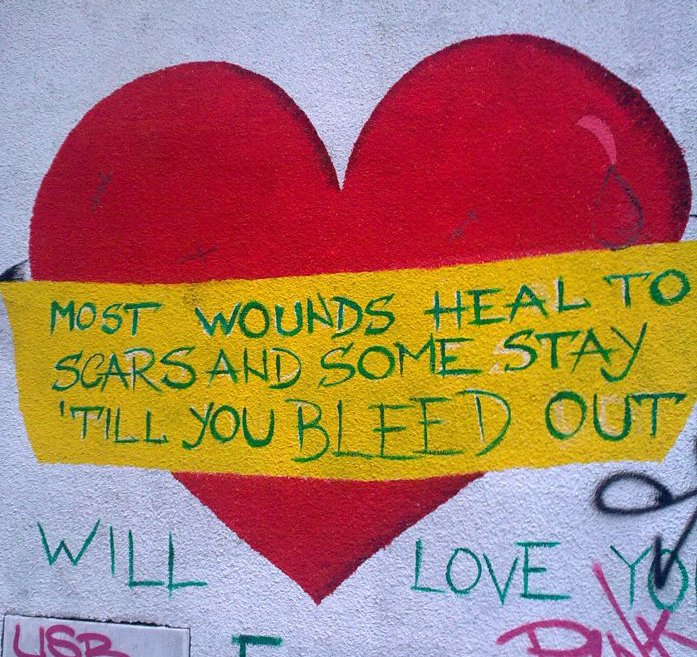 MOST WOUNDS HEAL TO
SCARS AND SOME STAY
'TILL YOU BLEED OUT
WILL LOVE YO
USR
PINK